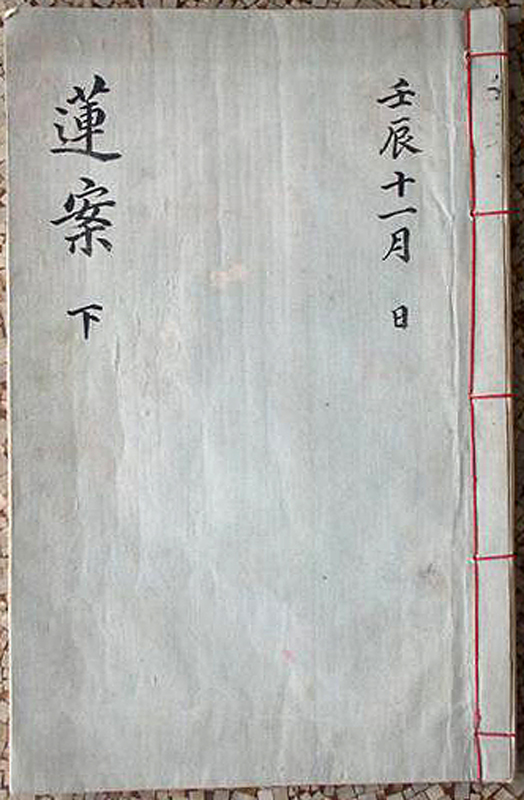 壬辰十一月 日
蓮案 下